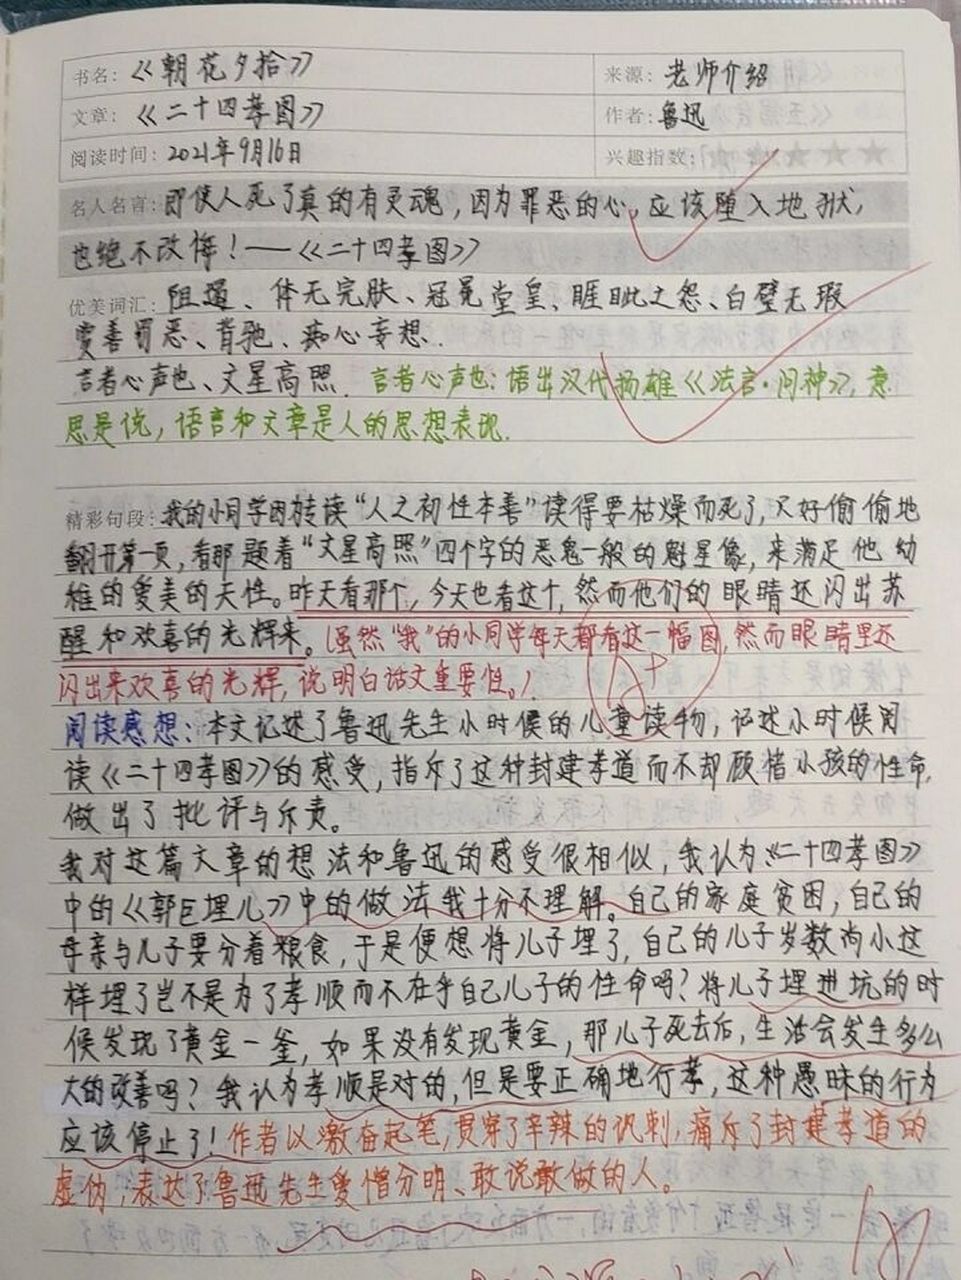 书名：《朝花夕拾》 来源：老师介绍
文章：《二十四孝图》 作者：鲁迅
阅读时间：2021年9月16日 兴趣指数：
名人名言：即使人死了真的有灵魂，因为罪恶的心，应该堕入地狱，
也绝不改悔！——《二十四孝图》
优美词汇：阻遏、体无完肤、冠冕堂皇、睚眦之怨、白璧无瑕
赏善罚恶、背驰、痴心妄想.
言者心声也、文星高照. 言者心声也：语出汉代扬雄《法言·问神》，意
思是说，语言和文章是人的思想表现.
精彩句段：我的小同学因转读“人之初性本善”读得要枯燥而死了，只好偷偷地
翻开第一页，看那题着“文星高照”四个字的恶鬼一般的魁星像，来满足他幼
稚的爱美的天性。昨天看那个，今天也看这个，然而他们的眼睛还闪出苏
醒和欢喜的光辉来。(虽然“我”的小同学每天都看这一幅图，然而眼睛里还
闪出来欢喜的光辉，说明白话文重要性。)
阅读感想：本文记述了鲁迅先生小时候的儿童读物，记述小时候阅
读《二十四孝图》的感受，指斥了这种封建孝道而不却顾惜小孩的性命，
做出了批评与斥责。
我对这篇文章的想法和鲁迅的感受很相似，我认为《二十四孝图》
中的《郭巨埋儿》中的做法我十分不理解。自己的家庭贫困，自己的
母亲与儿子要分着粮食，于是便想将儿子埋了，自己的儿子岁数尚小这
样埋了岂不是为了孝顺而不在乎自己儿子的性命吗？将儿子埋进坑的时
候发现了黄金一釜，如果没有发现黄金，那儿子死去后，生活会发生多么
大的改善吗？我认为孝顺是对的，但是要正确地行孝，这种愚昧的行为
应该停止了！作者以激奋起笔，贯穿了辛辣的讽刺，痛斥了封建孝道的
虚伪，表达了鲁迅先生爱憎分明、敢说敢做的人。